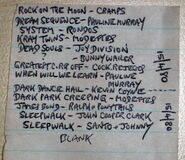 ROCK ON THE MOON - CRAMPS
DREAM SEQUENCE - PAULINE MURRAY
SYSTEM - RONDOS
KRAY TWINS - MODETTES
DEAD SOULS - JOY DIVISION
BUNNY WAILER
- COCK RENEGES
WHEN WILL WE LEARN - PAULINE
MURRAY
15/4/80
DARK DANCE HALL - KEVIN COYNE
DARK PARK CREEPING - MODETTES
JAMES BOND - RALPH & PONYTAILS
SLEEPWALK - JOHN COOPER CLARK
SLEEPWALK - SANTO + JOHNNY
BLANK
15/4/80